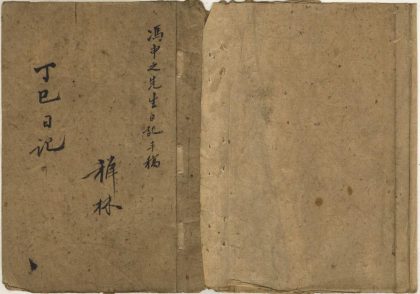 馮申之先生日記手稿
稺林
丁巳日记